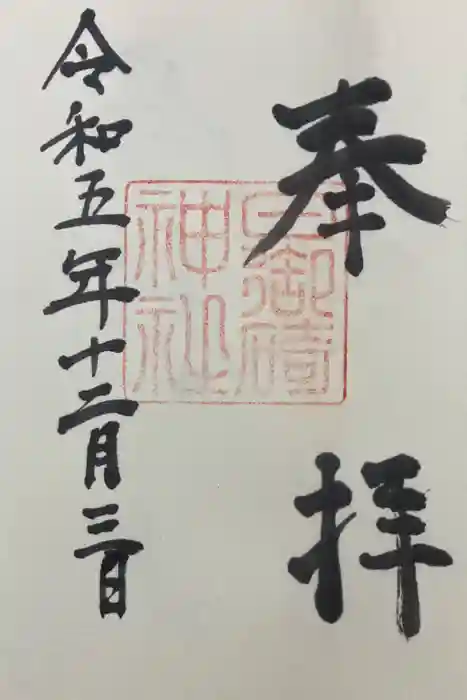 奉拝
御碕
神社
令和五年十二月三日